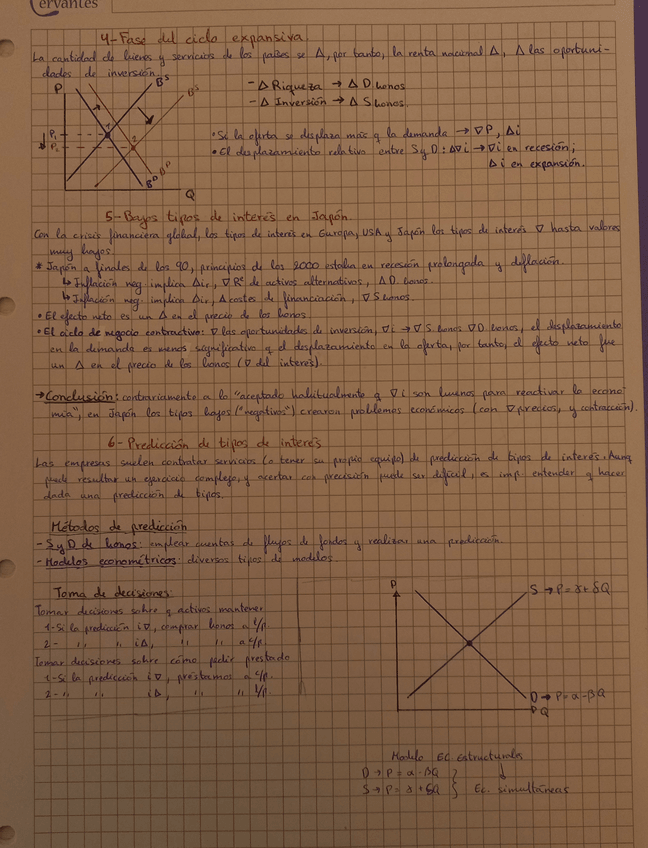 Cervantes
4-Fase del ciclo expansiva.
La cantidad de bienes y servicios de los países se Δ, por tanto, la renta nacional Δ, Δ las oportuni-
dades de inversión.
P
Bˢ
Bˢ
- Δ Riqueza → Δ D bonos
- Δ Inversión → Δ S bonos.
1
P₁
2
P₂
• Si la oferta se desplaza más q la demanda → ∇P, Δi
• El desplazamiento relativo entre S y D: Δ∇i → ∇i en recesión;
Δi en expansión.
Bᴰ
Bᴰ
Q
5-Bajos tipos de interés en Japón.
Con la crisis financiera global, los tipos de interés en Europa, USA y Japón los tipos de interés ∇ hasta valores
muy bajos.
* Japón a finales de los 90, principios de los 2000 estaba en recesión prolongada y deflación.
↳ Inflación neg. implica Δir, ∇ Rᵉ de activos alternativos, ΔD bonos.
↳ Inflación neg. implica Δir, Δ costes de financiación, ∇ S bonos.
• El efecto neto es un Δ en el precio de los bonos.
• El ciclo de negocio contractivo: ∇ las oportunidades de inversión, ∇i → ∇ S bonos ∇D bonos, el desplazamiento
en la demanda es menos significativo q el desplazamiento en la oferta, por tanto, el efecto neto fue
un Δ en el precio de los bonos (∇ del interés).
→ Conclusión: contrariamente a lo "aceptado habitualmente q ∇i son buenos para reactivar la econo-
mía", en Japón los tipos bajos ("negativos") crearon problemas económicos (con ∇ precios, y contracción).
6- Predicción de tipos de interés
Las empresas suelen contratar servicios (o tener su propio equipo) de predicción de tipos de interés. Aunq
puede resultar un ejercicio complejo, y acertar con precisión puede ser difícil, es imp. entender q hacer
dada una predicción de tipos.
Métodos de predicción
- S y D de bonos: emplear cuentas de flujos de fondos y realizar una predicción.
- Modelos econométricos: diversos tipos de modelos.
Toma de decisiones:
Tomar decisiones sobre q activos mantener
1-Si la predicción i∇, comprar bonos a l/p.
2- ,, ,, iΔ, ,, ,, a c/p.
Tomar decisiones sobre cómo pedir prestado
1-Si la predicción i∇, préstamos a c/p.
2- ,, ,, iΔ, ,, ,, l/p.
P
S → P=γ+δQ
D → P=α-βQ
Q
Modelo EC. Estructurales
D → P= α-βQ
S → P= γ+δQ } Ec. simultáneas